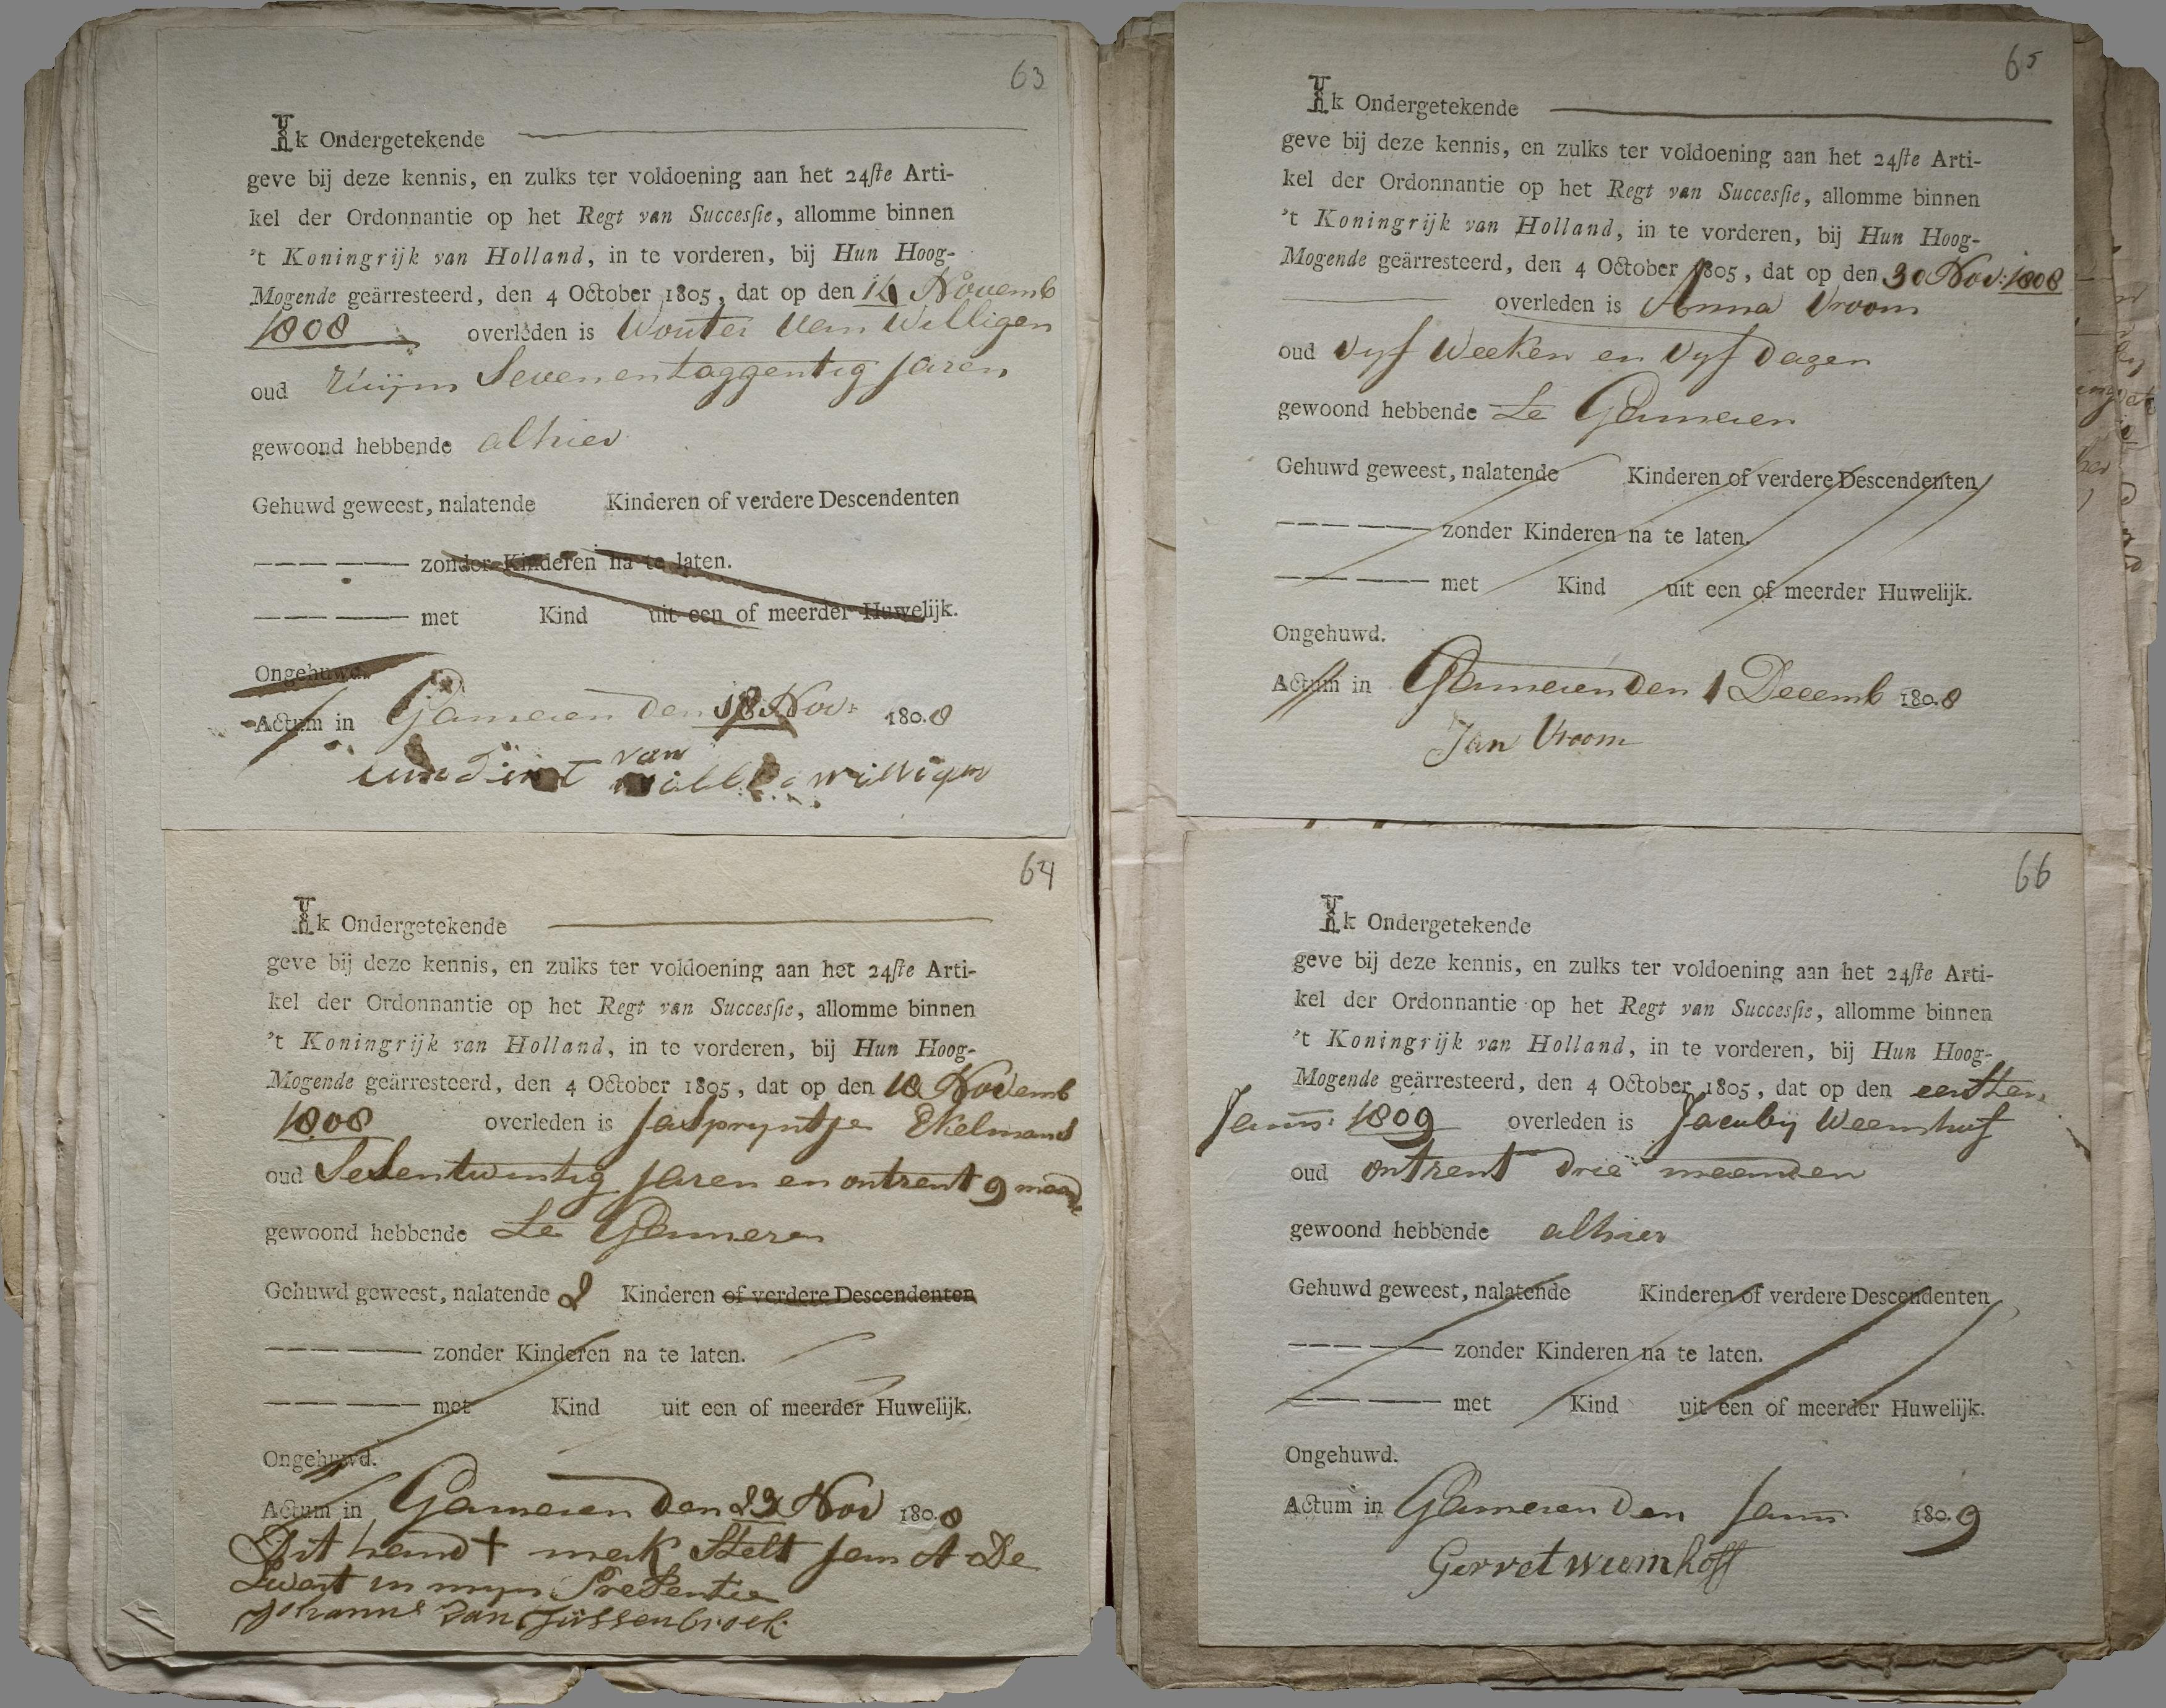 63
Ik Ondergetekende
geve bij deze kennis, en zulks ter voldoening aan het 24ste Arti-
kel der Ordonnantie op het Regt van Successie, allomme binnen
't Koningrijk van Holland, in te vorderen, bij Hun Hoog-
Mogende geärresteerd, den 4 October 1805, dat op den 16 Novemb
1808 overleden is Wouter van Willigen
oud ruijm Sevenentaggentig Jaren
gewoond hebbende alhier
Gehuwd geweest, nalatende Kinderen of verdere Descendenten
zonder Kinderen na te laten.
met Kind uit een of meerder Huwelijk.
Ongehuwd.
Actum in Gameren den 18 Nov: 1808
van
willigen
64
Ik Ondergetekende
geve bij deze kennis, en zulks ter voldoening aan het 24ste Arti-
kel der Ordonnantie op het Regt van Successie, allomme binnen
't Koningrijk van Holland, in te vorderen, bij Hun Hoog-
Mogende geärresteerd, den 4 October 1805, dat op den 18 Novemb
1808 overleden is Jaspryntje Ekelmans
oud Sesentwintig Jaren en ontrent 9 maand
gewoond hebbende Te Gameren
Gehuwd geweest, nalatende 2 Kinderen of verdere Descendenten
zonder Kinderen na te laten.
met Kind uit een of meerder Huwelijk.
Ongehuwd.
Actum in Gameren den 23 Nov 1808
Dit hand + merk Stelt Jan A De
Swart in myn Presentie
Johannes van Tussenbroek
65
Ik Ondergetekende
geve bij deze kennis, en zulks ter voldoening aan het 24ste Arti-
kel der Ordonnantie op het Regt van Successie, allomme binnen
't Koningrijk van Holland, in te vorderen, bij Hun Hoog-
Mogende geärresteerd, den 4 October 1805, dat op den 30 Nov: 1808
overleden is Anna Vroom
oud vyf Weeken en vyf dagen
gewoond hebbende Te Gameren
Gehuwd geweest, nalatende Kinderen of verdere Descendenten
zonder Kinderen na te laten.
met Kind uit een of meerder Huwelijk.
Ongehuwd.
Actum in Gameren den 1 Decemb 1808
Jan Vroom
66
Ik Ondergetekende
geve bij deze kennis, en zulks ter voldoening aan het 24ste Arti-
kel der Ordonnantie op het Regt van Successie, allomme binnen
't Koningrijk van Holland, in te vorderen, bij Hun Hoog-
Mogende geärresteerd, den 4 October 1805, dat op den eersten
Jann: 1809 overleden is Jacubij Weemhof
oud ontrent drie maanden
gewoond hebbende alhier
Gehuwd geweest, nalatende Kinderen of verdere Descendenten
zonder Kinderen na te laten.
met Kind uit een of meerder Huwelijk.
Ongehuwd.
Actum in Gameren den Jann 1809
Gerret weemhoff